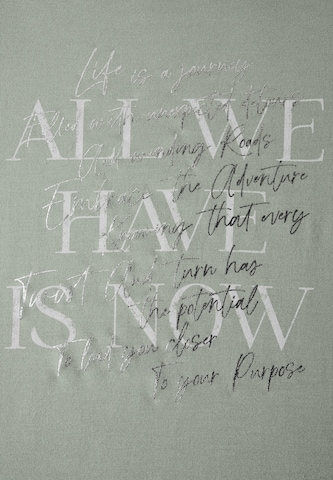 Life is a journey
Filled with unexpected detours
And winding Roads
Embrace the Adventure
knowing that every
Twist And turn has
the potential
To lead you closer
To your Purpose
ALL WE
HAVE
IS NOW